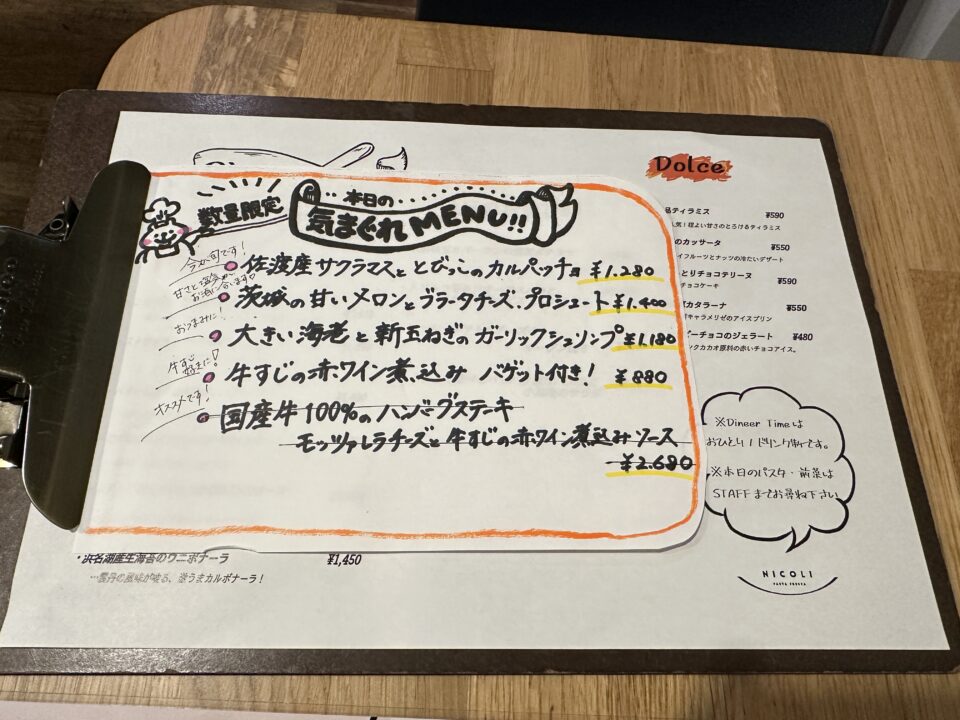 数量限定
本日の
気まぐれMENU!!
今が旬です!
佐渡産サクラマスととびっこのカルパッチョ ¥1.280
甘さと塩気が
お酒に合います♡
茨城の甘いメロンとブラータチーズ、プロシュート ¥1.400
おつまみに!
大きい海老と新玉ねぎのガーリックシュリンプ ¥1.180
牛すじ
好きに!
牛すじの赤ワイン煮込み バゲット付き! ¥880
オススメです!
国産牛100%のハンバーグステーキ
モッツァレラチーズと牛すじの赤ワイン煮込みソース
¥2.680
・浜名湖産生海苔のウニボナーラ ¥1,450
…雲丹の風味が香る、激うまカルボナーラ!
Dolce
ティラミス ¥590
人気!程よい甘さのとろけるティラミス
のカッサータ ¥550
イフルーツとナッツの冷たいデザート
とりチョコテリーヌ ¥590
チョコケーキ
カタラーナ ¥550
キャラメリゼのアイスプリン
ビーチョコのジェラート ¥480
ックカカオ原料の赤いチョコアイス。
※Dineer Timeは
おひとり1ドリンク制です。
※本日のパスタ・前菜は
STAFFまでお尋ね下さい
NICOLI
PASTA FRESCA